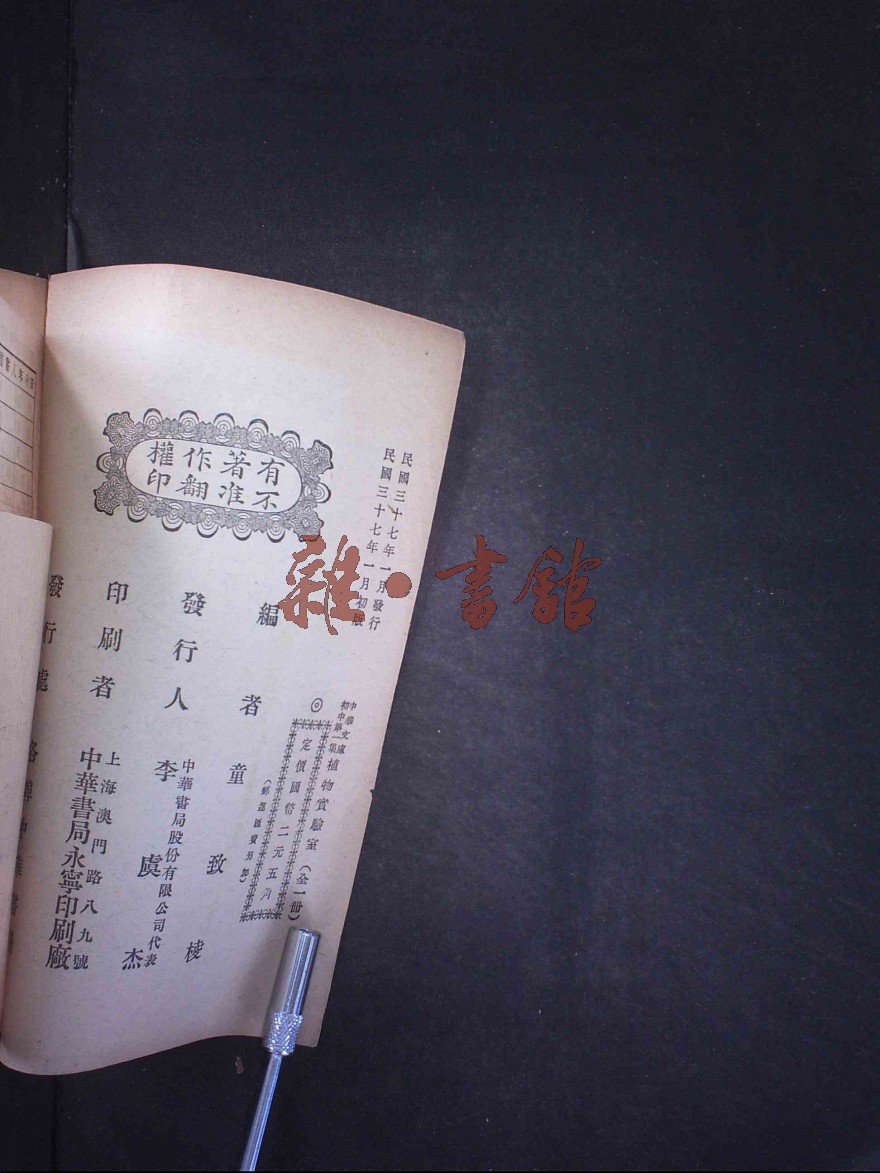 民國三十七年一月發行
民國三十七年一月初版
有著作權
不准翻印
中華文庫
初中第一集
植物實驗室(全一冊)
◎
定價國幣二元五角
(郵運匯費另加)
編者 童致棱
發行人 李虞杰
中華書局股份有限公司代表
印刷者 中華書局永寧印刷廠
上海澳門路八九號
發行處
雜·書館